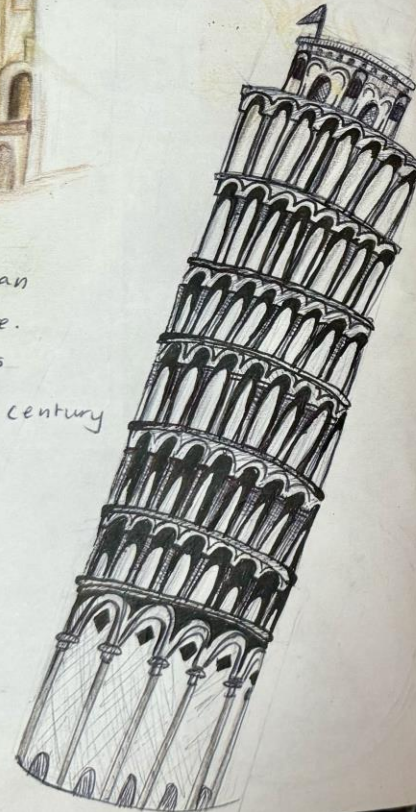 an
e.
s
century